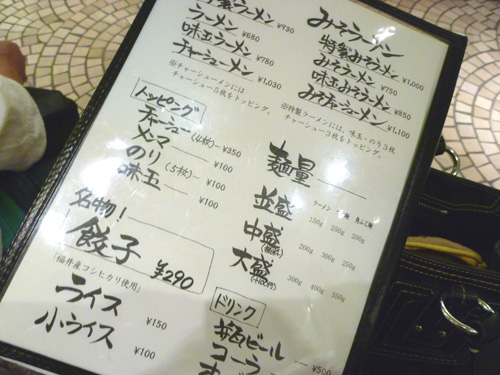 製ラーメン ¥930
ラーメン ¥680
味玉ラーメン ¥780
チャーシューメン ¥1,030
※チャーシューメンには
チャーシュー5枚をトッピング。
みそラーメン
特製みそラーメン ¥1,000
みそラーメン ¥750
味玉みそラーメン ¥850
みそチャーシューメン ¥1,100
※特製ラーメンには、味玉・のり3枚
チャーシュー3枚をトッピング。
トッピング
チャーシュー(4枚) ¥350
メンマ ¥100
のり(5枚) ¥100
味玉 ¥100
名物!
餃子 ¥290
「福井産コシヒカリ使用」
ライス ¥150
小ライス ¥100
麺量
ラーメン
並盛 150g 250g 200g
中盛 200g 300g 250g
大盛(+100円) 300g 400g 350g
ドリンク
ビール ¥500
コーラ